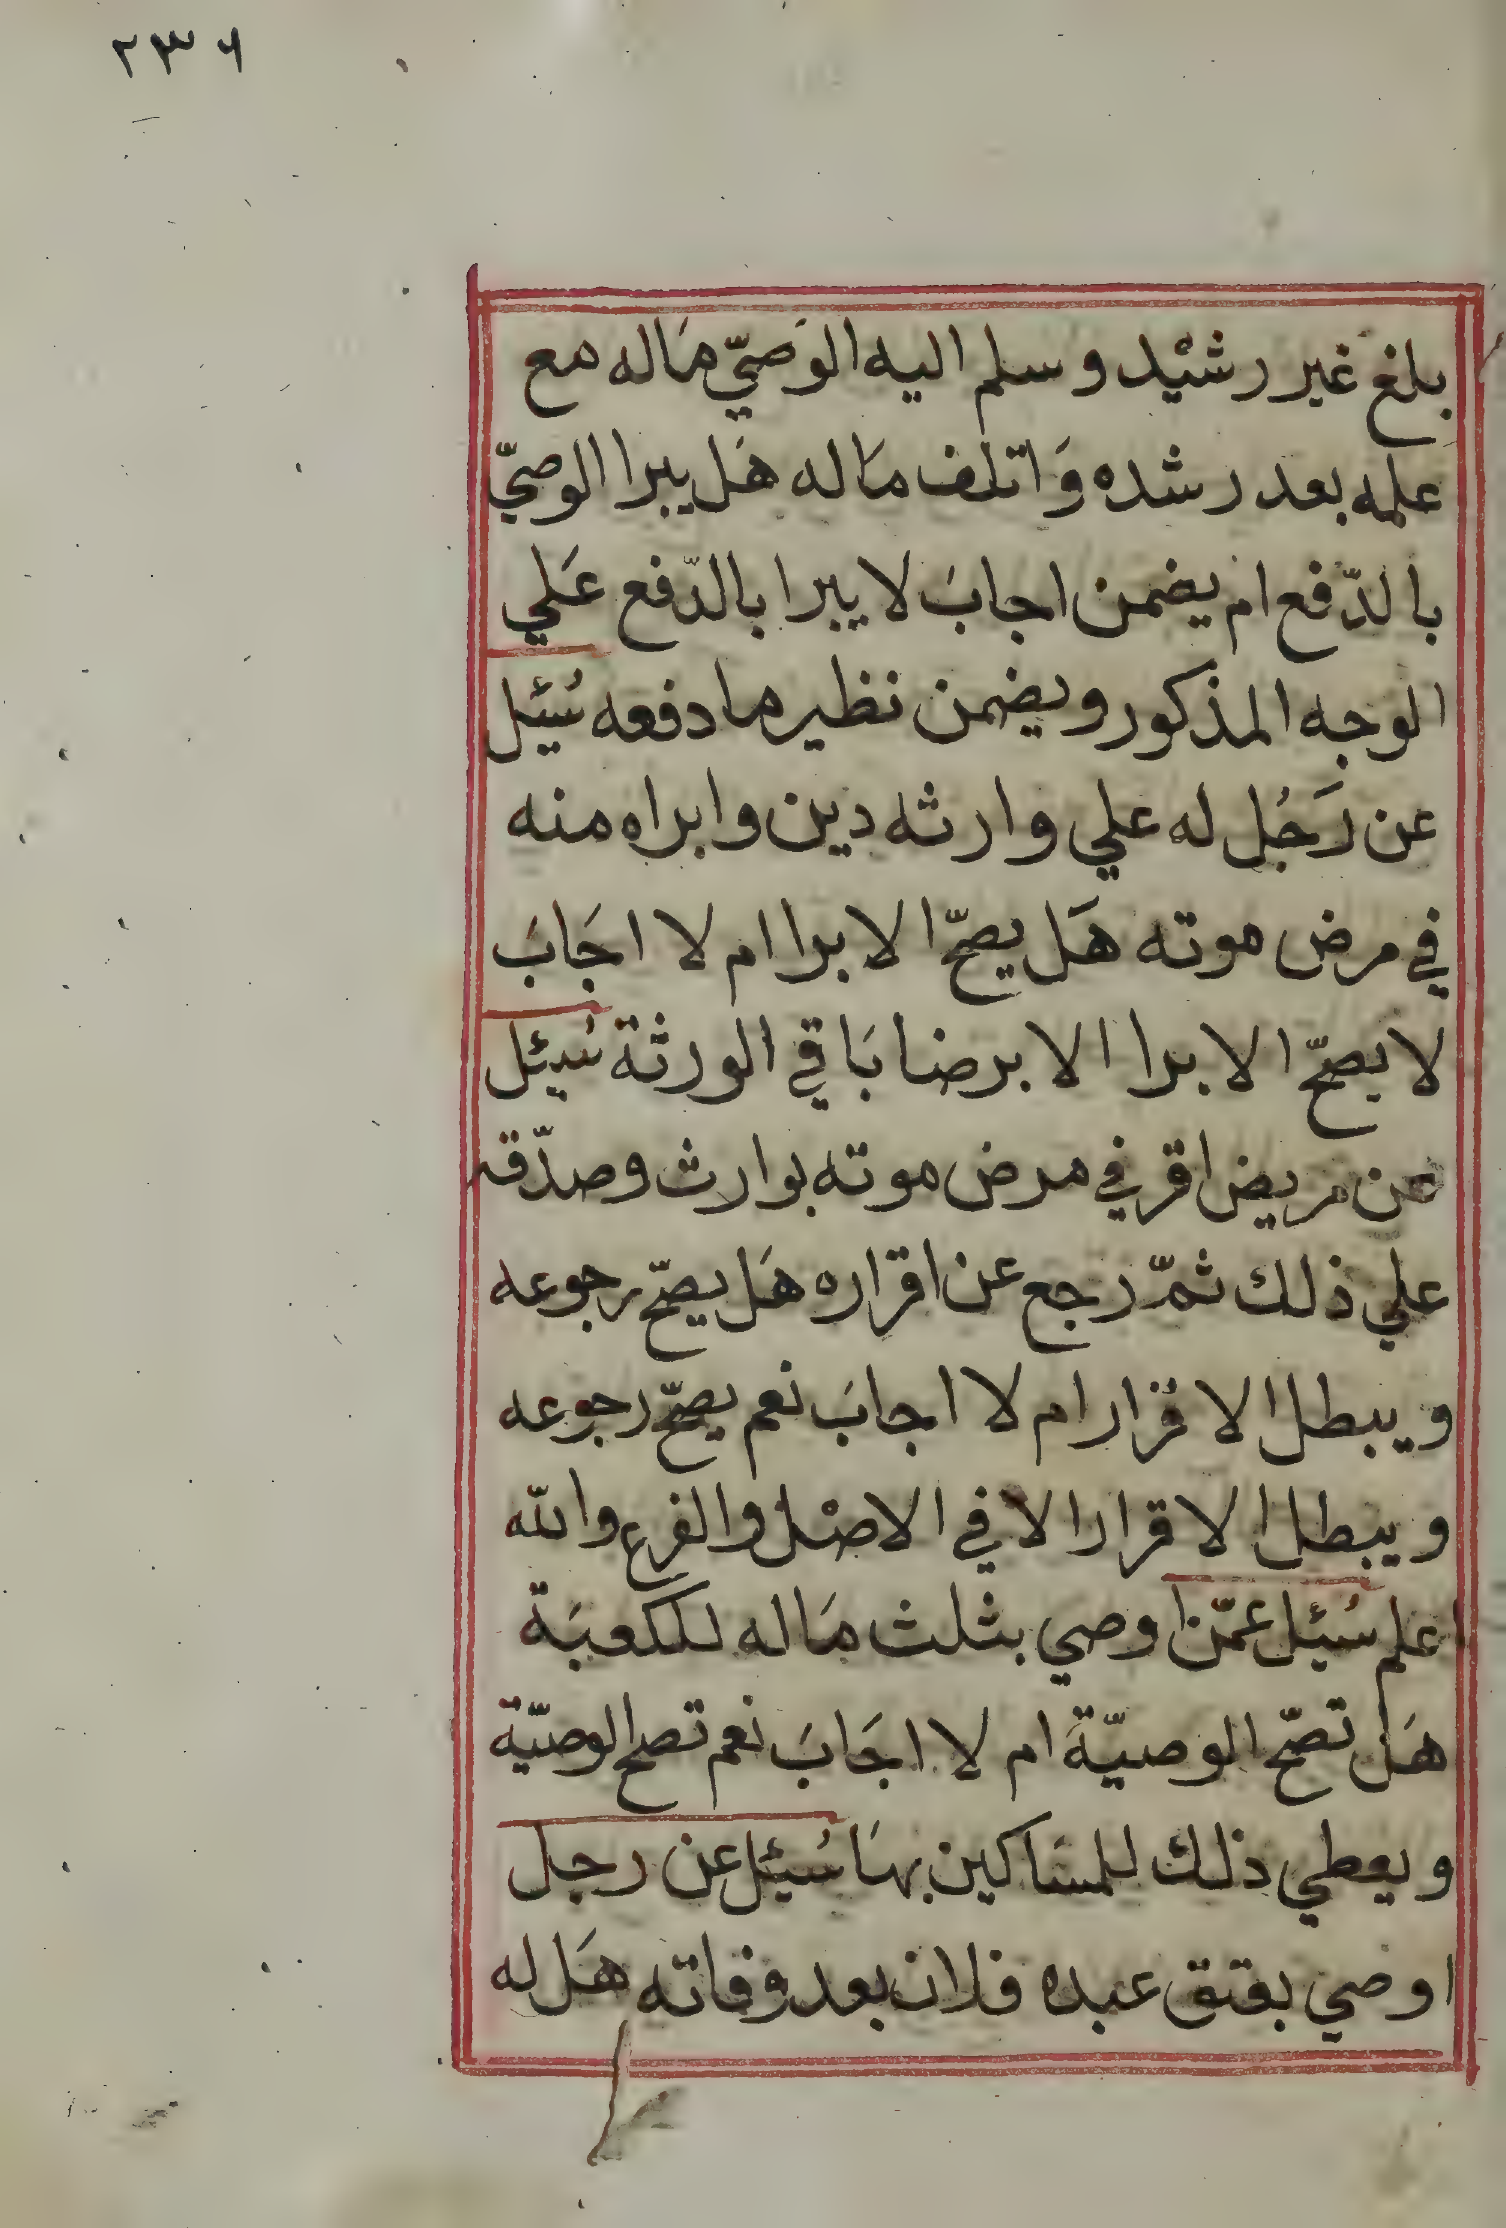 ٢٣٦
بلغ غير رشيد وسلم اليه الوَصيّ مَاله مع
علمه بعد رشده وَاتلف مَاله هَل يبرا الوصيّ
بالدّفع ام يضمن اجابَ لا يبرا بالدّفع عَلي
الوجه المذكور ويضمن نظير ما دفعه سُئِل
عن رَجُل له علي وارثه دين وابراه منه
في مرض موته هَل يصحّ الابرا ام لا اجَابَ
لا يصحّ الابرا الا برضا بَاقي الورثة سُئِل
عن مريض اقر في مرض موته بوارث وصدّقه
علي ذلك ثمّ رجع عن اقراره هَل يصحّ رجوعه
ويبطل الاقرار ام لا اجابَ نعم يصحّ رجوعه
ويبطل الاقرار الا في الاصْل والفرع والله
اعلم سُئِل عمّن اوصي بثلث مَاله للكعبَة
هَل تصحّ الوصيّة ام لا اجَابَ نعم تصح الوصيّة
ويعطي ذلك للمسَاكين بهَا سُئِل عن رجل
اوصي بعتق عبده فلان بعد وفاته هَل له